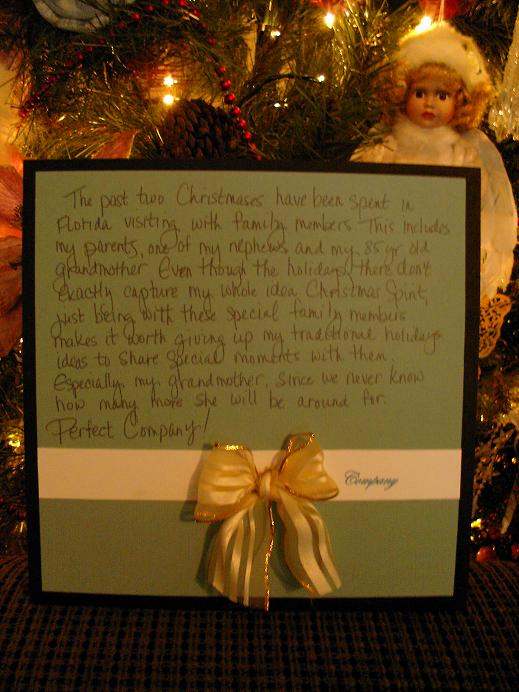 The past two Christmases have been spent in
Florida visiting with family members. This includes
my parents, one of my nephews and my 85 yr old
grandmother. Even though the holidays there don't
exactly capture my whole idea Christmas Spirit,
just being with these special family members
makes it worth giving up my traditional holidays
ideas to share special moments with them.
Especially my grandmother, since we never know
how many more she will be around for.
Perfect Company!
Company